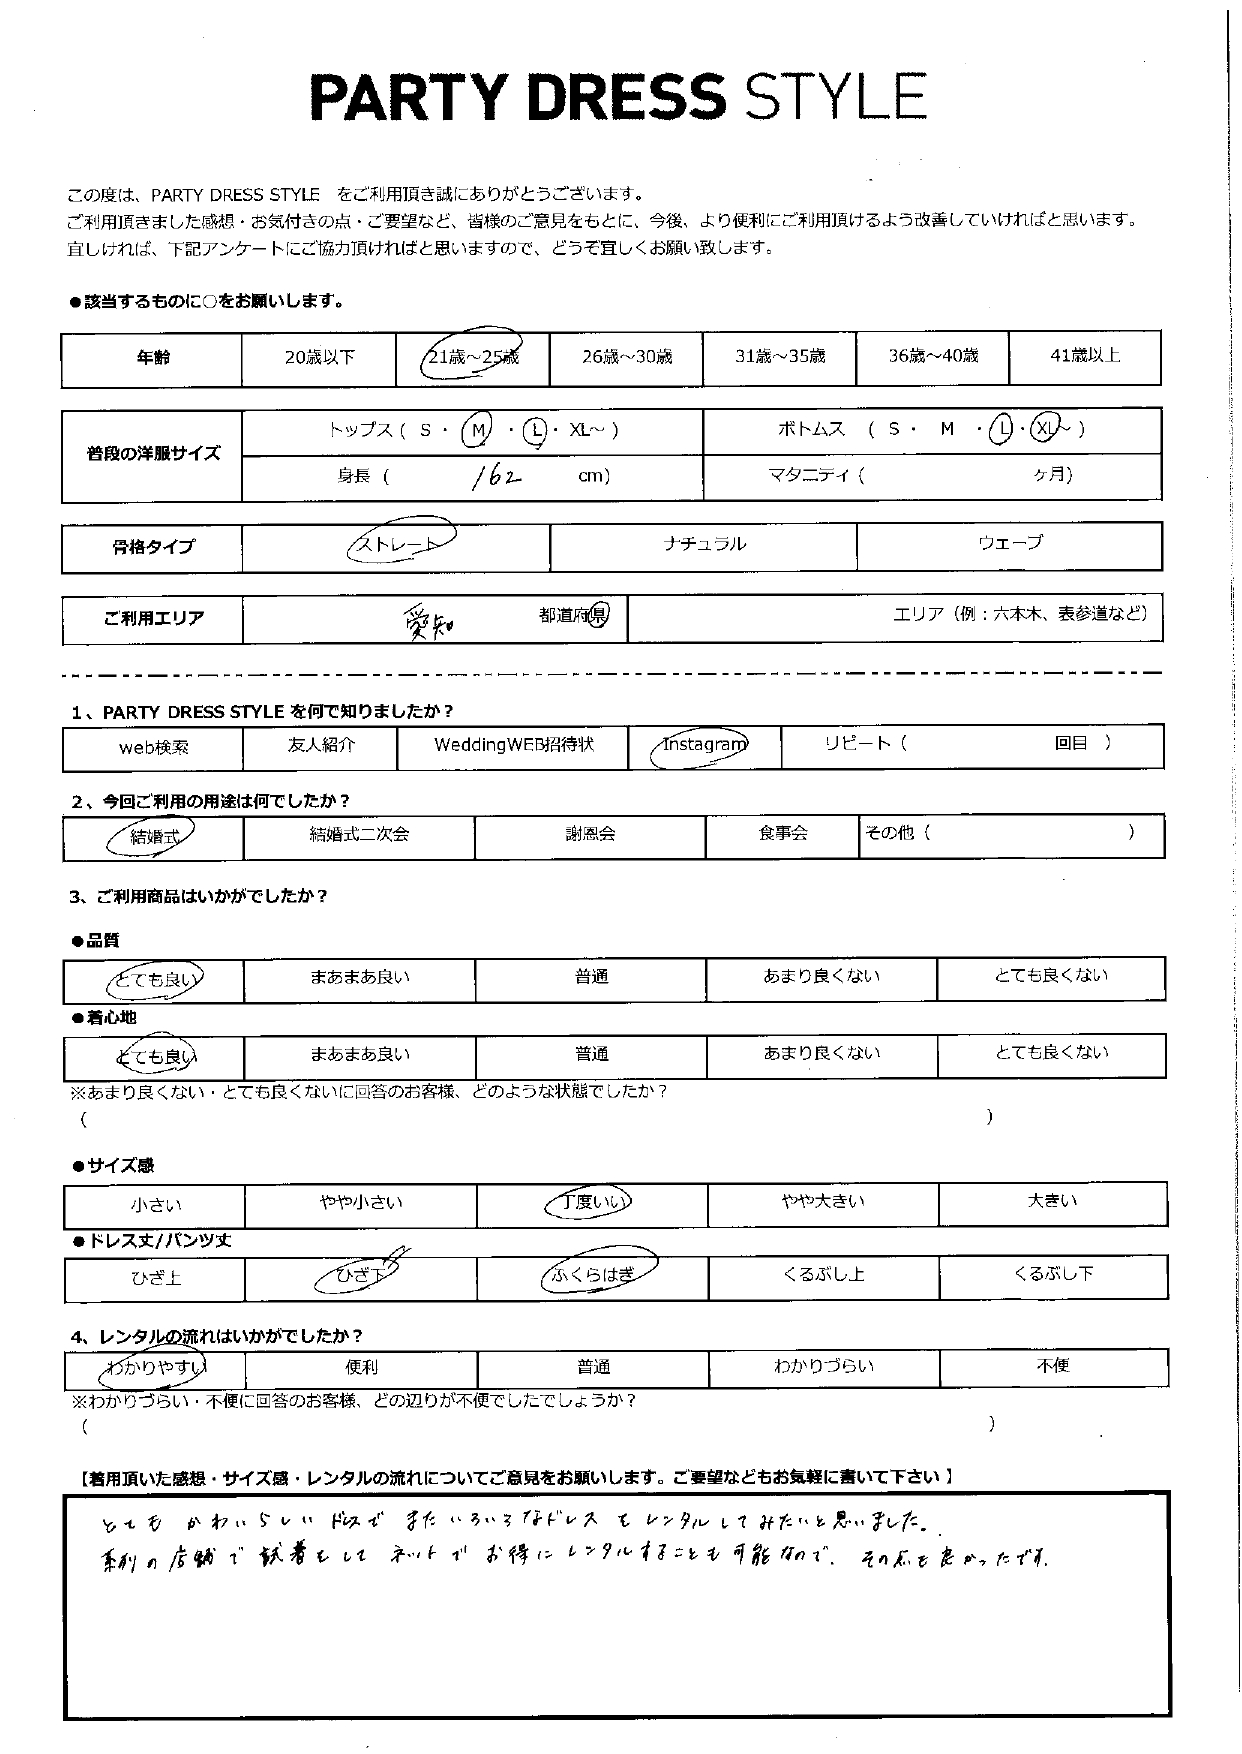 PARTY DRESS STYLE
この度は、PARTY DRESS STYLE をご利用頂き誠にありがとうございます。
ご利用頂きました感想・お気付きの点・ご要望など、皆様のご意見をもとに、今後、より便利にご利用頂けるよう改善していければと思います。
宜しければ、下記アンケートにご協力頂ければと思いますので、どうぞ宜しくお願い致します。
●該当するものに○をお願いします。
年齢 20歳以下 21歳～25歳 26歳～30歳 31歳～35歳 36歳～40歳 41歳以上
普段の洋服サイズ トップス ( S ・ M ・ L ・ XL～ ) ボトムス ( S ・ M ・ L ・ XL～ )
身長 ( 162 cm) マタニティ ( ヶ月)
骨格タイプ ストレート ナチュラル ウェーブ
ご利用エリア 愛知 都道府県 エリア（例：六本木、表参道など）
1、PARTY DRESS STYLE を何で知りましたか？
web検索 友人紹介 WeddingWEB招待状 Instagram リピート ( 回目 )
2、今回ご利用の用途は何でしたか？
結婚式 結婚式二次会 謝恩会 食事会 その他 ( )
3、ご利用商品はいかがでしたか？
●品質
とても良い まあまあ良い 普通 あまり良くない とても良くない
●着心地
とても良い まあまあ良い 普通 あまり良くない とても良くない
※あまり良くない・とても良くないに回答のお客様、どのような状態でしたか？
( )
●サイズ感
小さい やや小さい 丁度いい やや大きい 大きい
●ドレス丈/パンツ丈
ひざ上 ひざ下 ふくらはぎ くるぶし上 くるぶし下
4、レンタルの流れはいかがでしたか？
わかりやすい 便利 普通 わかりづらい 不便
※わかりづらい・不便に回答のお客様、どの辺りが不便でしたでしょうか？
( )
【着用頂いた感想・サイズ感・レンタルの流れについてご意見をお願いします。ご要望などもお気軽に書いて下さい】
とてもかわいらしいドレスでまたいろいろなドレスをレンタルしてみたいと思いました。
系列の店舗で試着をしてネットでお得にレンタルすることも可能なので、その点も良かったです。